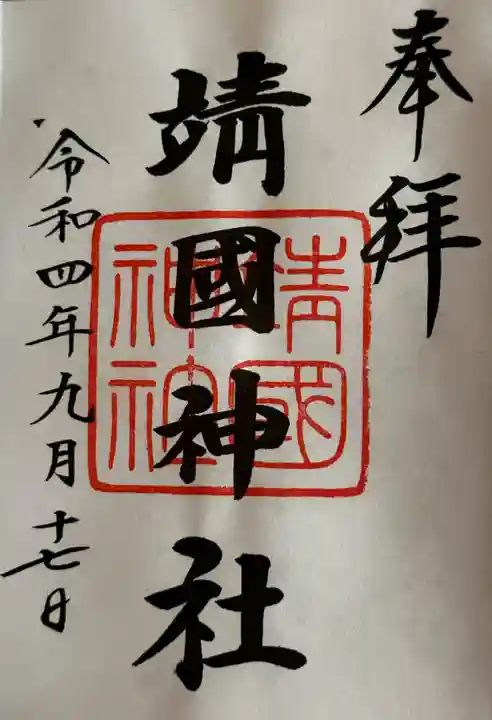 奉拝
靖國神社
靖國
神社
令和四年九月十七日